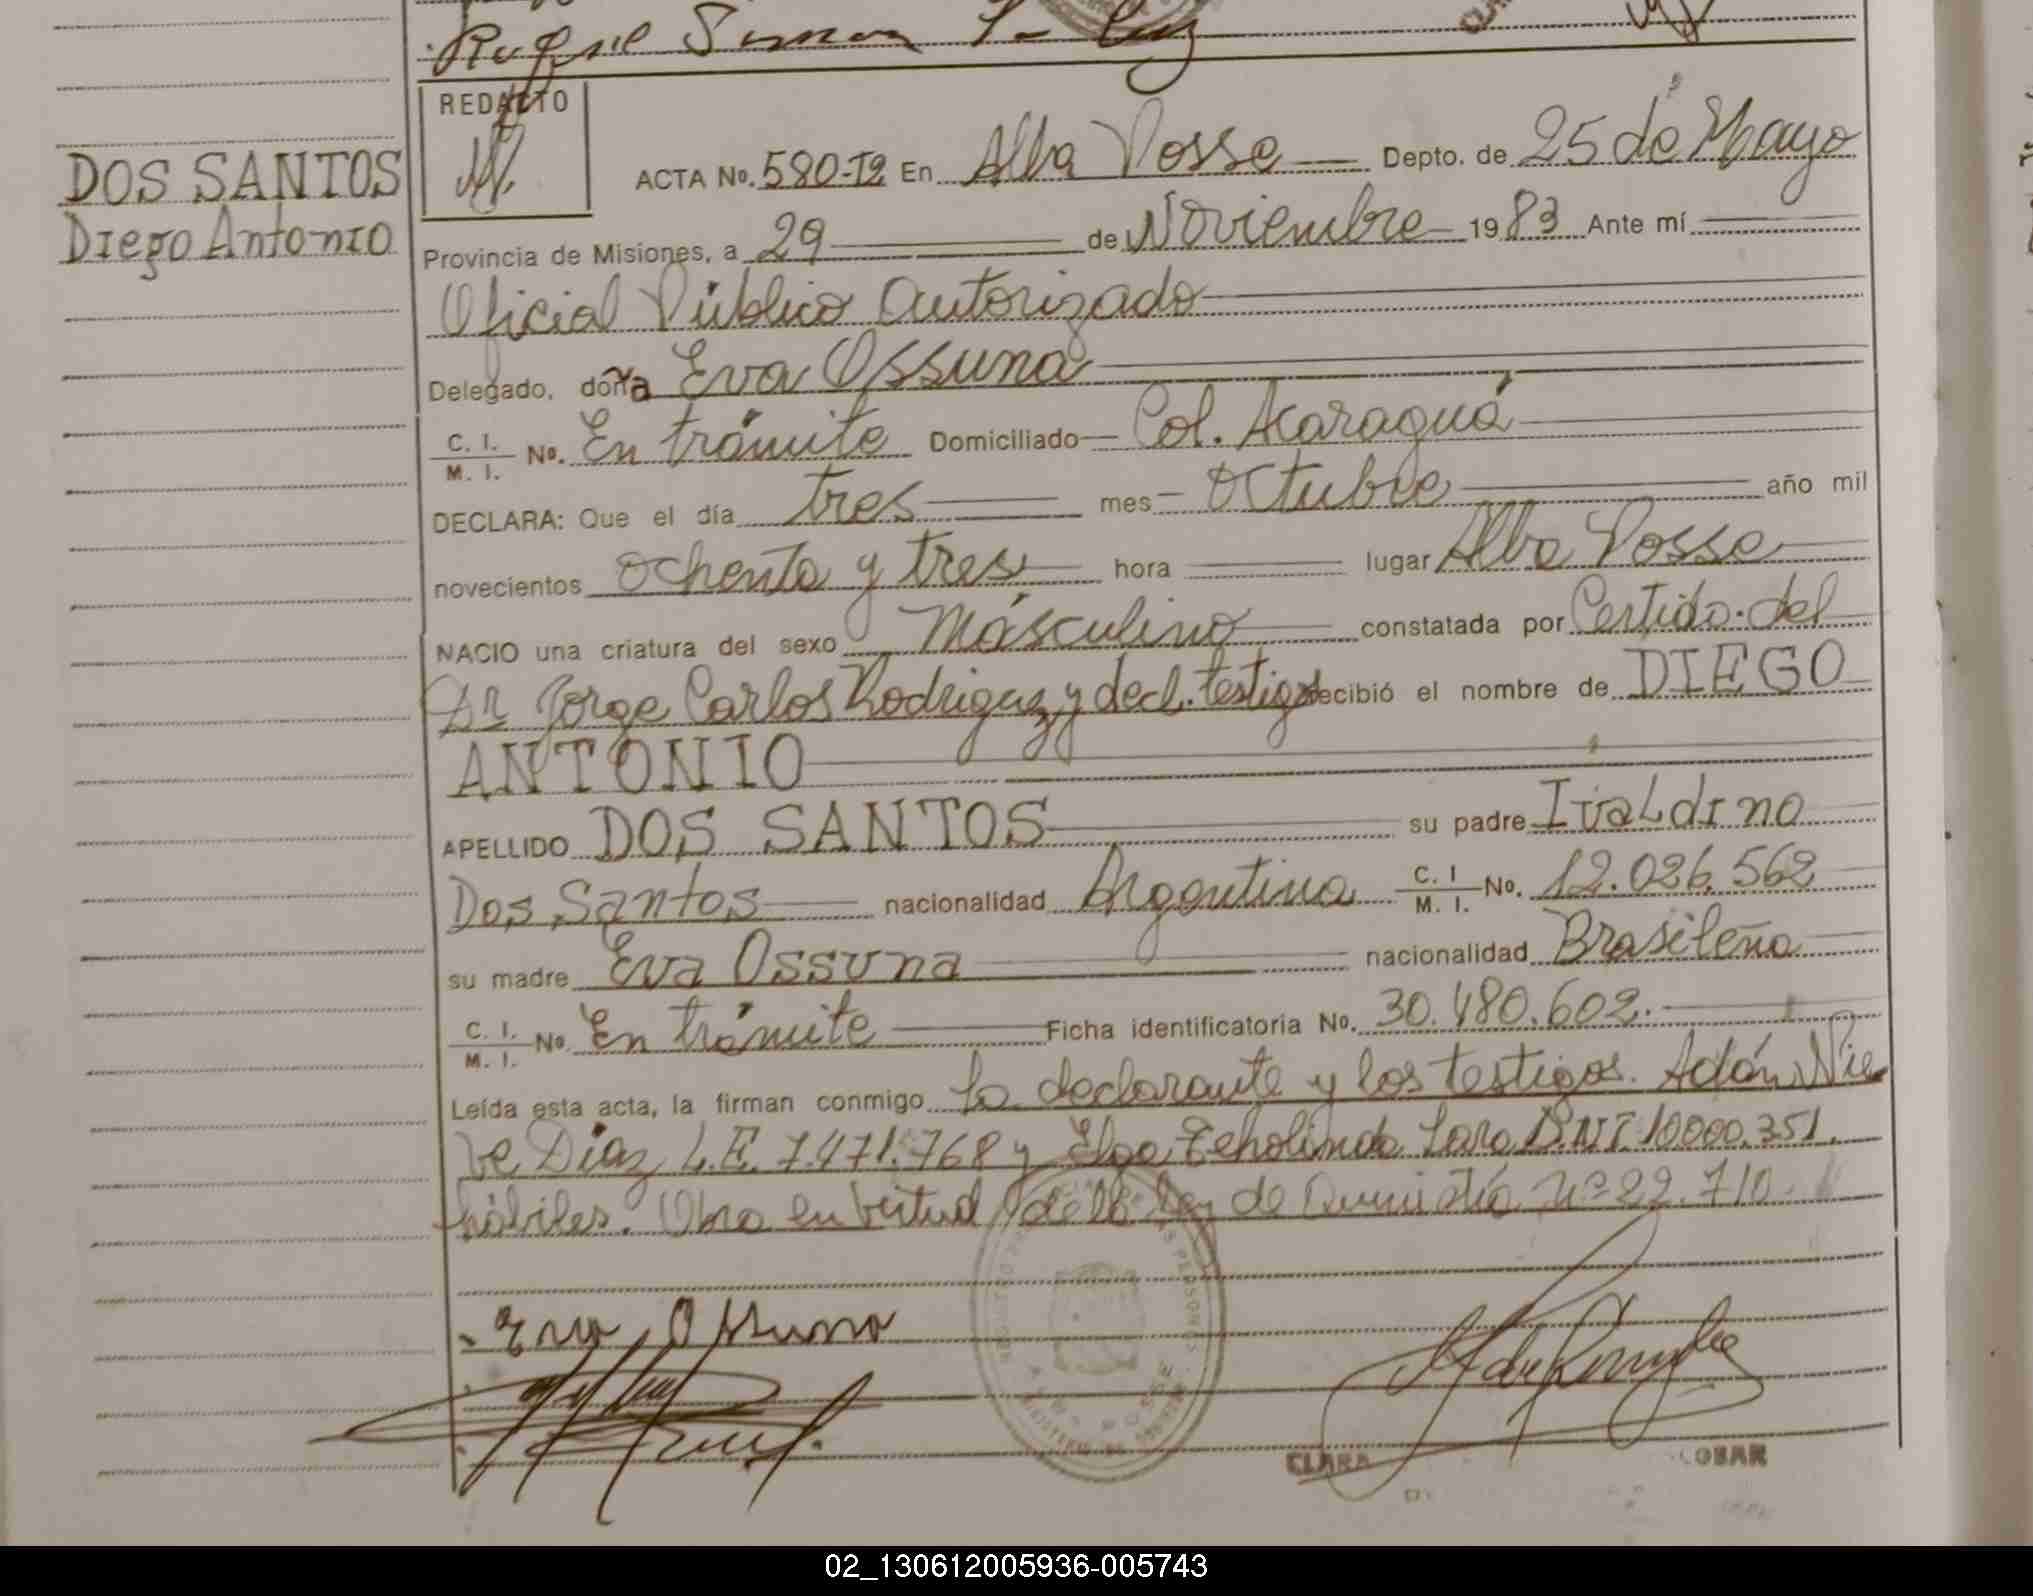 DOS SANTOS
Diego Antonio
REDACTO
ACTA No. 580-T2 En Alba Posse Depto. de 25 de Mayo
Provincia de Misiones, a 29 de Noviembre 1983 Ante mí
Oficial Público Autorizado
Delegado, doña Eva Ossuna
C. I. / M. I. No. En trámite Domiciliado Col. Acaraguá
DECLARA: Que el día tres mes Octubre año mil
novecientos ochenta y tres hora lugar Alba Posse
NACIO una criatura del sexo Másculino constatada por Certido. del
Dr Jorge Carlos Rodriguez y decl. testigos recibió el nombre de DIEGO
ANTONIO
APELLIDO DOS SANTOS su padre Ivaldino
Dos Santos nacionalidad Argentina C. I / M. I. No. 12.026.562
su madre Eva Ossuna nacionalidad Brasileña
C. I. / M. I. No. En trámite Ficha identificatoria No. 30.480.602.
Leída esta acta, la firman conmigo La declarante y los testigos. Adán Nie
ve Diaz L.E. 7.471.768 y Lara D.N.I. 10.000.351.
hábiles. Obra en virtud de la Ley de Amnistía Nº 22.710
Eva Ossuna
CLARA
02_130612005936-005743